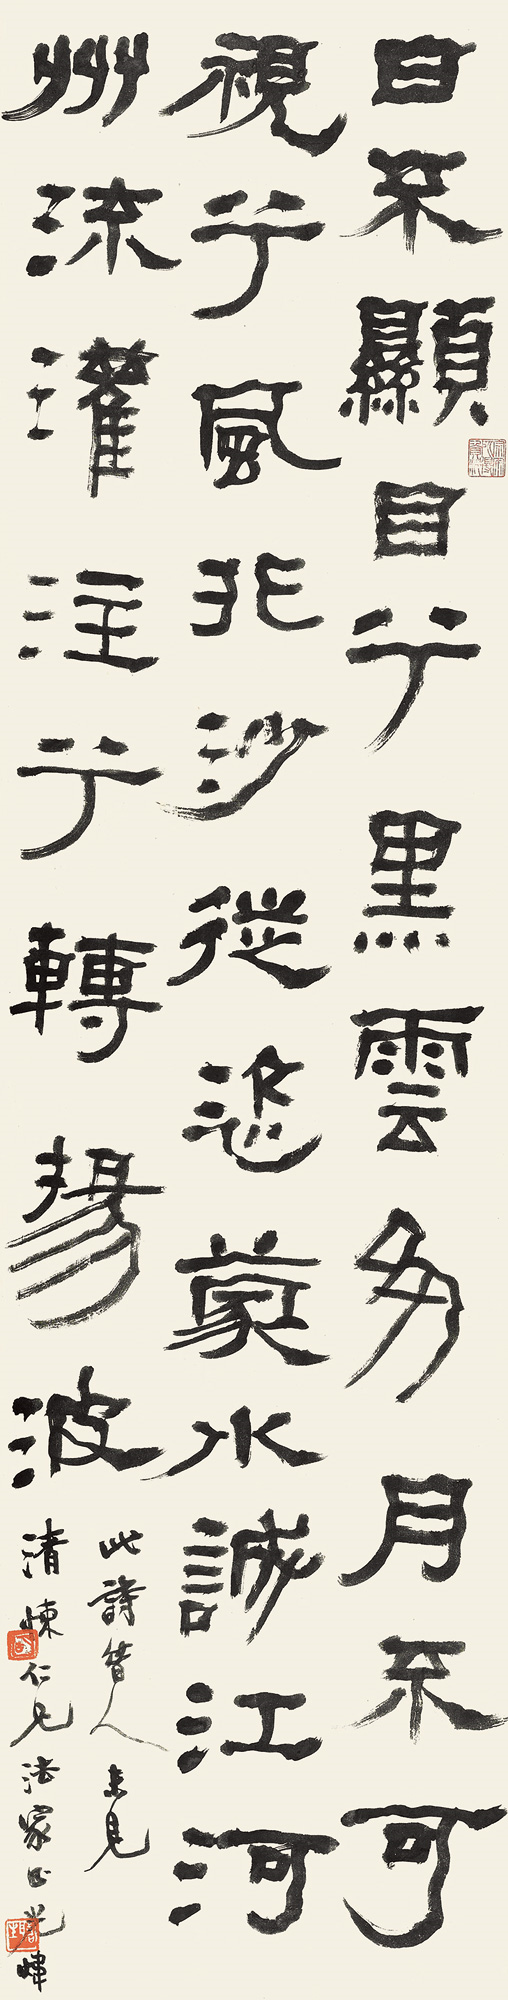 日不顯目兮黑雲多月不可
視兮風非沙從恣蒙水誠江河
州流灌注兮轉揚波
此詩昔人未見
清悚仁兄法家正光煒